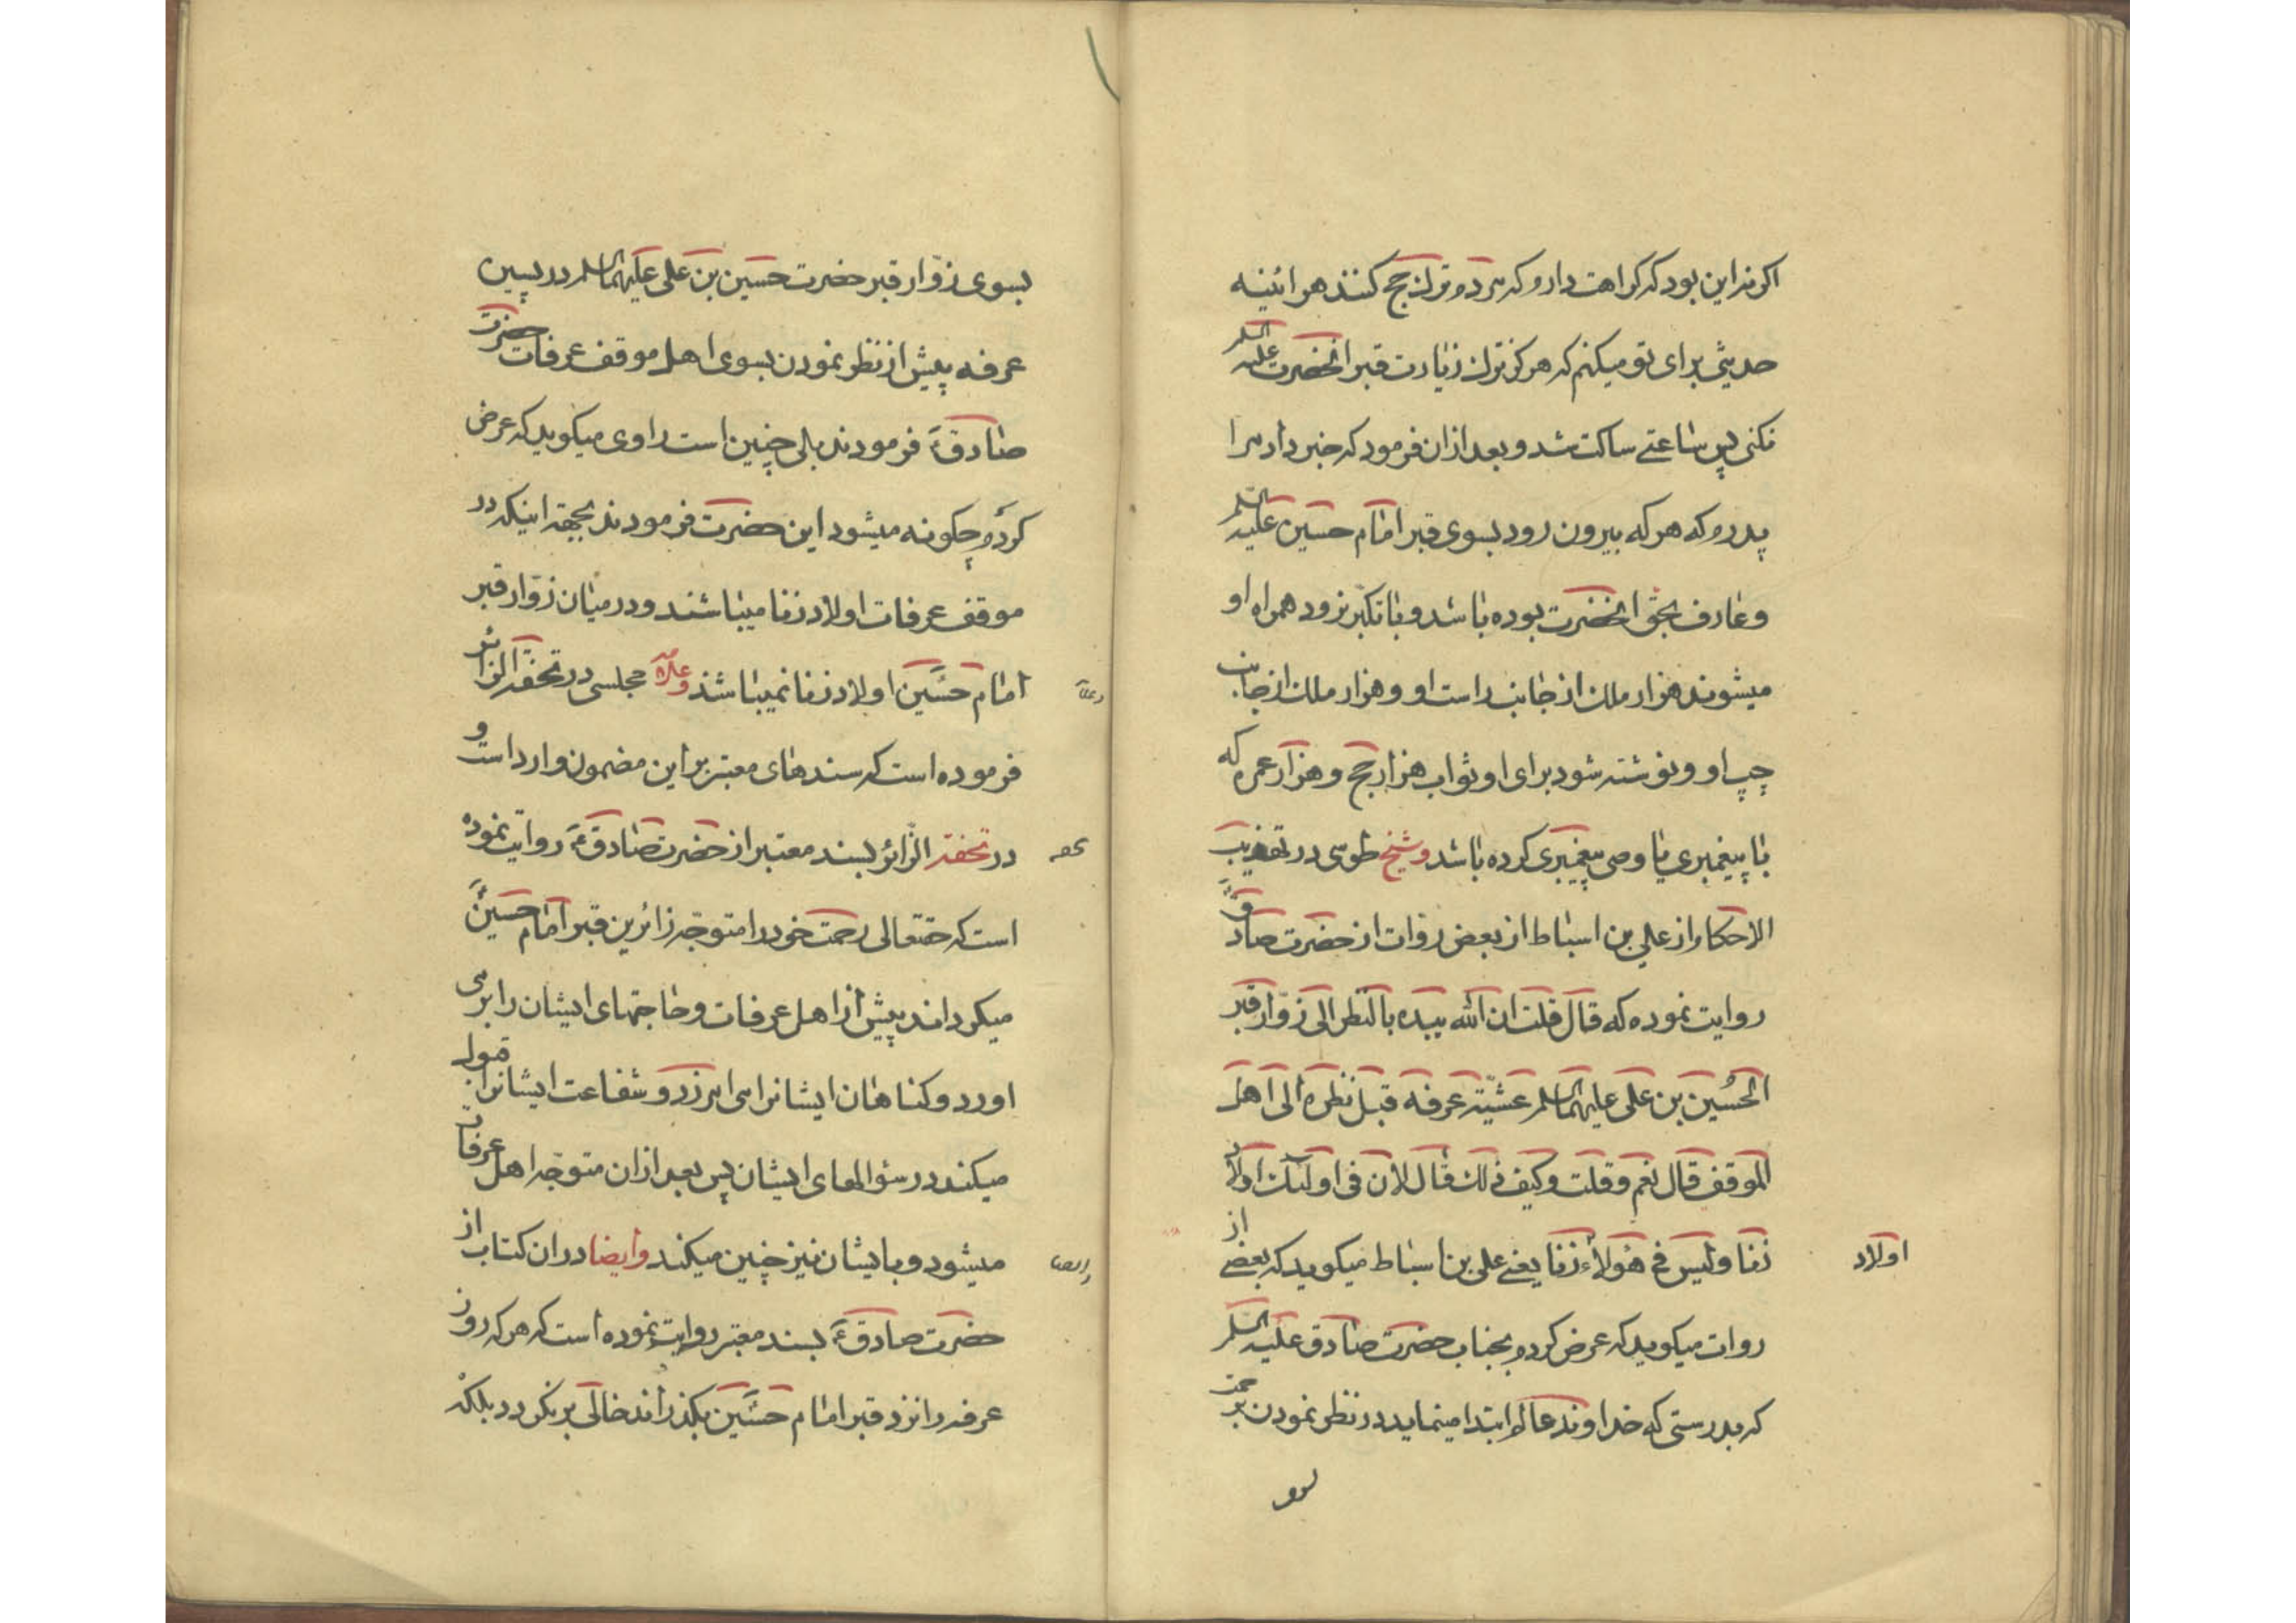 اکر نه این بود که کراهت دارم که مردم ترک حج کنند هراینه
حدیثی برای تو میکنم که هرکز ترک زیارت قبر انحضرت علیه السلم
نکنی پس ساعتی ساکت شد و بعد از ان فرمود که خبر داد مرا
پدرم که هر که بیرون رود بسوی قبر امام حسین علیه السلم
و عارف بحق انحضرت بوده باشد و با تکبر نرود همراه او
میشوند هزار ملک از جانب راست او و هزار ملک از جانب
چپ او و نوشته شود برای او ثواب هزار حج و هزار عمره که
با پیغمبری یا وصی پیغمبری کرده باشد و شیخ طوسی در تهذیب
الاحکام از علی بن اسباط از بعض روات از حضرت صادق
روایت نموده که قال قلت ان الله یبدء بالنظر الی زوّار قبر
الحُسین بن علی علیهما السلم عشیّة عرفه قبل نظره الی اهل
الموقف قال نعم و قلت و کیف ذلک قال لان فی اولئک اولاد
زنا و لیس فی هؤلاء زنا یعنی علی بن اسباط میکوید که بعضی از
اولاد
روات میکوید که عرض کردم بجناب حضرت صادق علیه السلم
که بدرستی که خداوند عالم ابتدا مینماید در نظر نمودن برحمت
بسوی زوّار قبر حضرت حسین بن علی علیهما السلم در پسین
عرفه پیش از نظر نمودن بسوی اهل موقف عرفات حضرت
صادقؑ فرمودند بلی چنین است راوی میکوید که عرض
کردم چکونه میشود این حضرت فرمودند بجهة اینکه در
موقف عرفات اولاد زنا میباشند و در میان زوّار قبر
امام حسینؑ اولاد زنا نمیباشند و علامه مجلسی در تحفة الزائر
فرموده است که سندهای معتبر بر این مضمون وارد است و
در تحفة الزّائر بسند معتبر از حضرت صادقؑ روایت نموده
است که حقتعالی رحمت خود را متوجّه زائرین قبر امام حسینؑ
میکرداند پیش از اهل عرفات و حاجتهای ایشان را بر می
اورد و کناهان ایشانرا می امرزد و شفاعت ایشانرا قبول
میکند در سؤالهای ایشان پس بعد از ان متوجّه اهل عرفات
میشود و با ایشان نیز چنین میکند و ایضا در ان کتاب از
و ایضا
حضرت صادقؑ بسند معتبر روایت نموده است که هر که روز
عرفه را نزد قبر امام حسینؑ بکذراند خالی بر نکردد بلکه